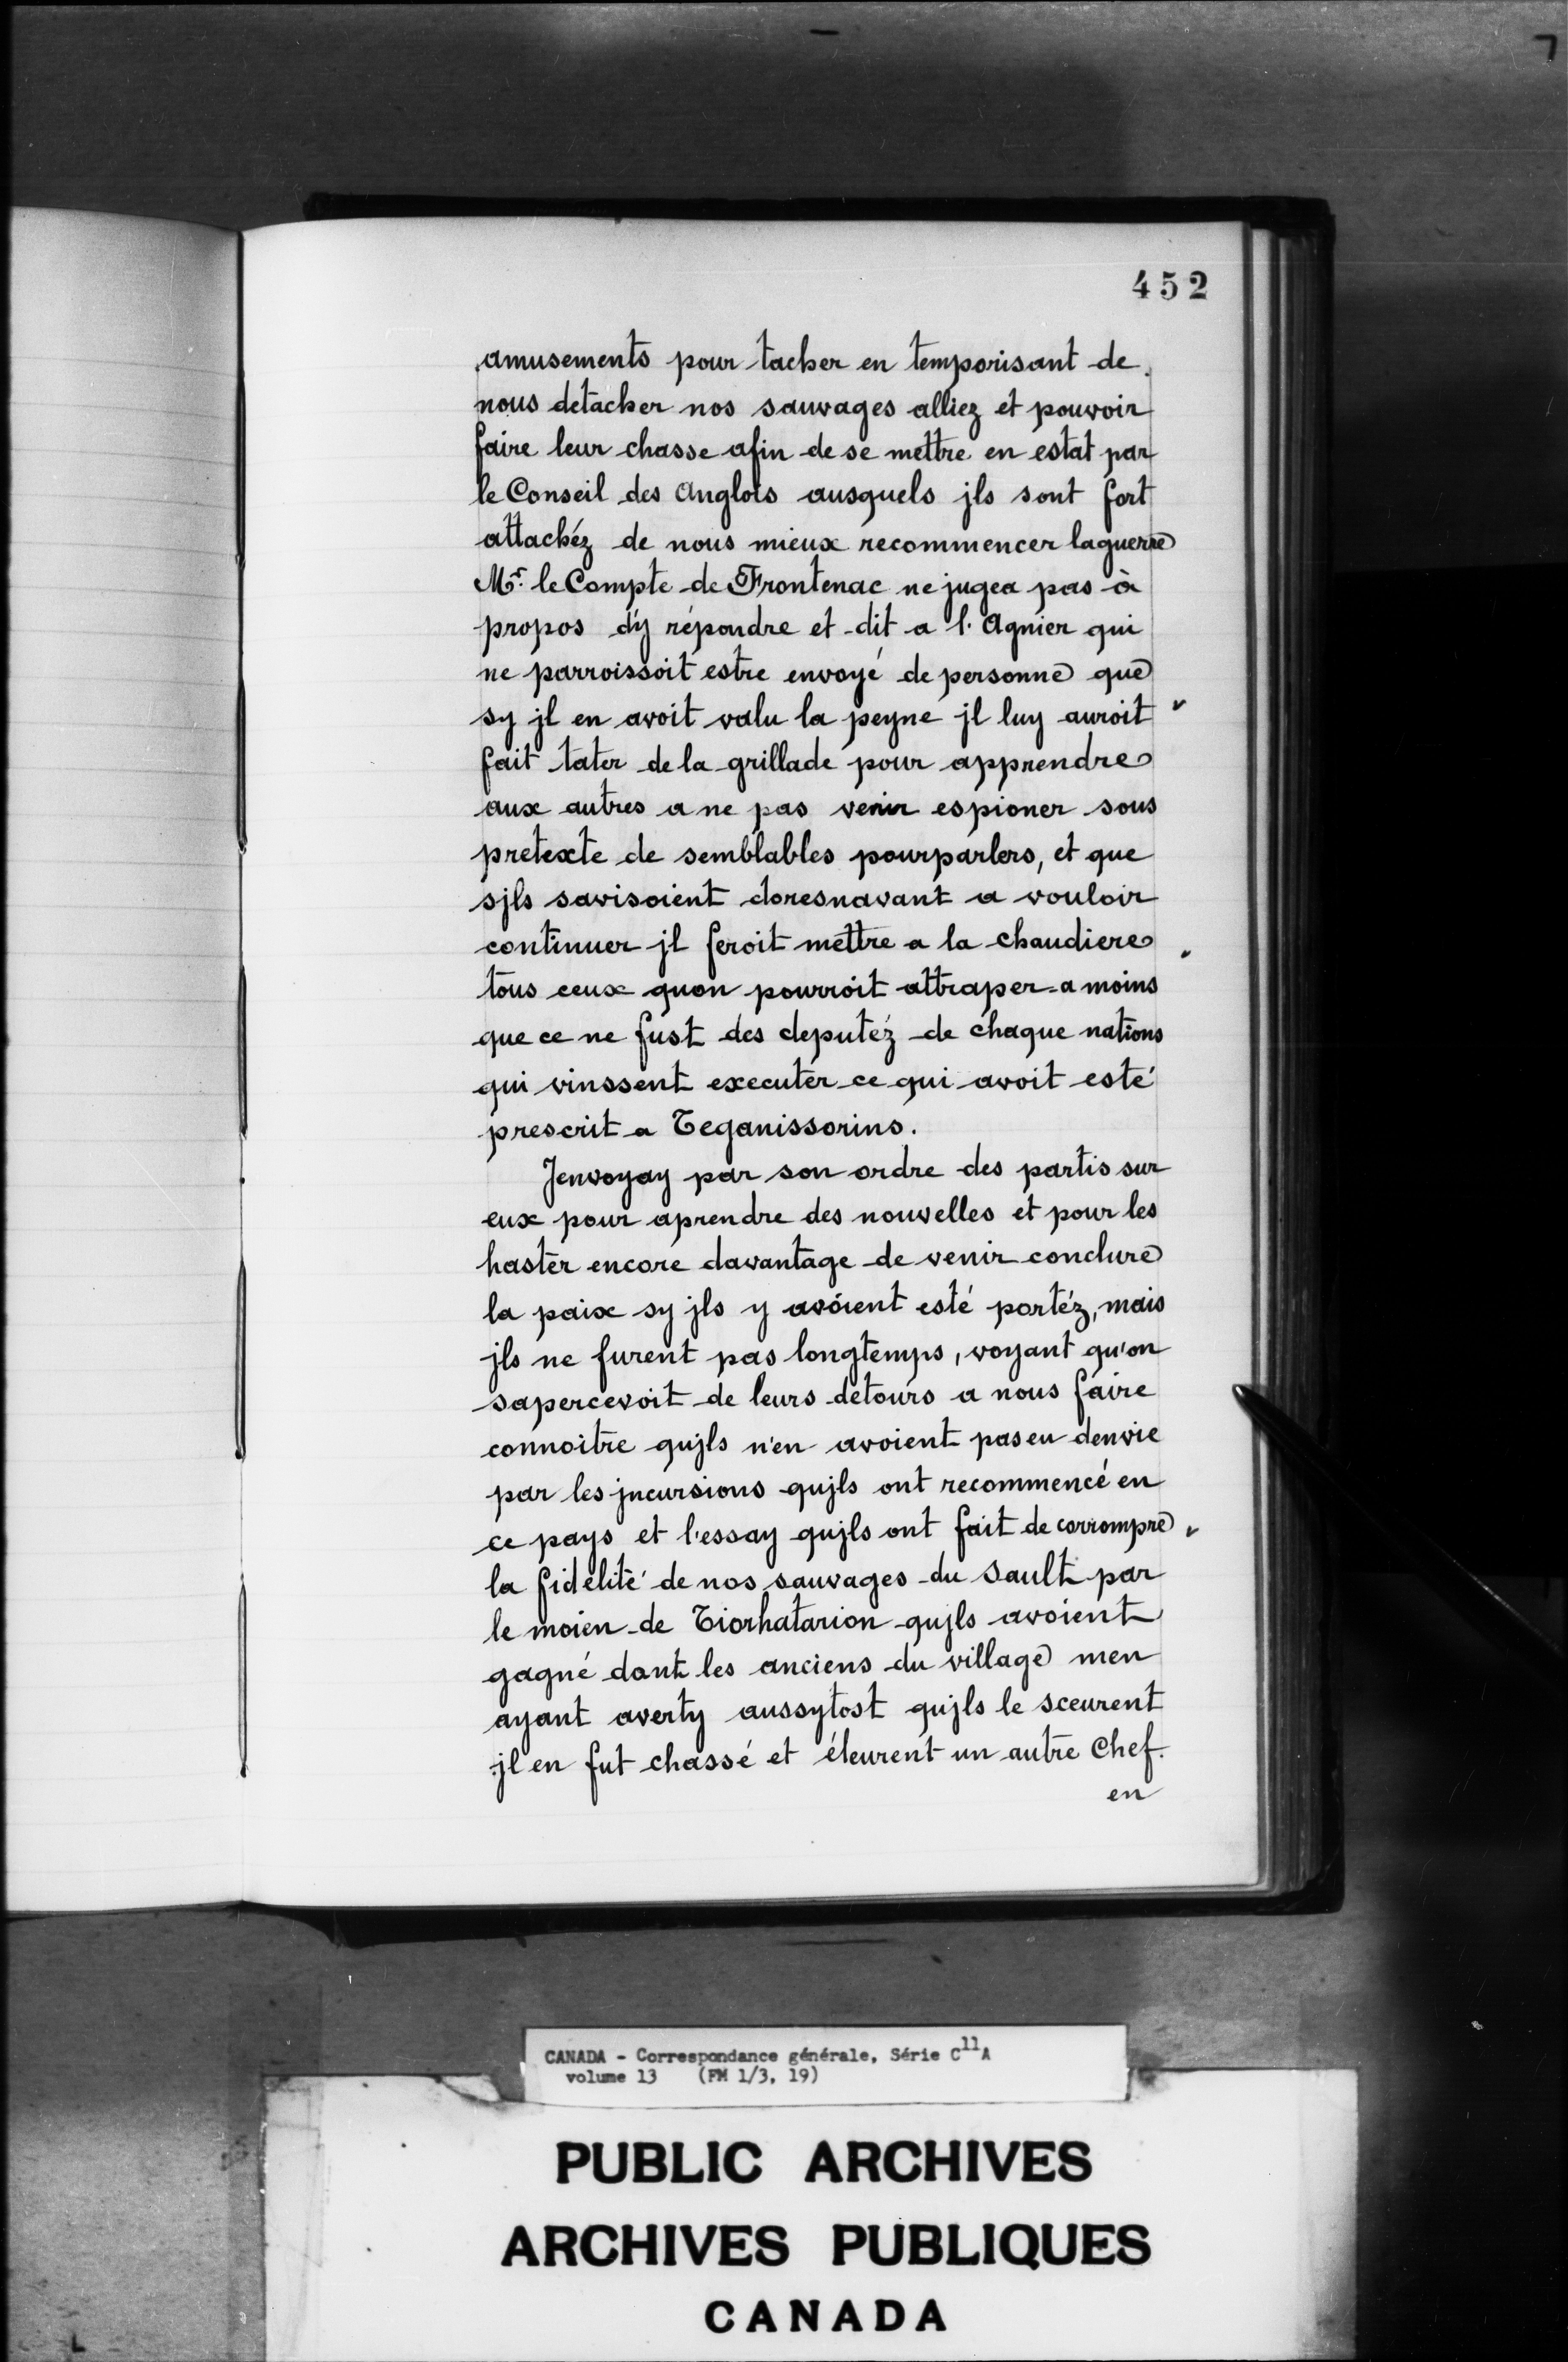 452
amusements pour tacher en temporisant de
nous detacher nos sauvages alliez et pouvoir
faire leur chasse afin de se mettre en estat par
le Conseil des Anglois ausquels jls sont fort
attachéz de nous mieux recommencer laguerre
Mr. le Compte de Frontenac ne jugea pas à
propos d'y répondre et dit a l'Agnier qui
ne parroissoit estre envoyé de personne que
sy jl en avoit valu la peyne jl luy auroit
fait tater de la grillade pour apprendre
aux autres a ne pas venir espioner sous
pretexte de semblables pourparlers, et que
sjls savisoient doresnavant a vouloir
continuer jl feroit mettre a la chaudiere
tous ceux quon pourroit attraper a moins
que ce ne fust des deputéz de chaque nations
qui vinssent executer ce qui avoit esté
prescrit a Teganissorins.
Jenvoyay par son ordre des partis sur
eux pour aprendre des nouvelles et pour les
haster encore davantage de venir conclure
la paix sy jls y avoient esté portéz, mais
jls ne furent pas longtemps, voyant qu'on
sapercevoit de leurs detours a nous faire
connoitre qujls n'en avoient pas eu denvie
par les jncursions qujls ont recommencé en
ce pays et l'essay qujls ont fait de corrompre
la fidelité de nos sauvages du Sault par
le moien de Tiorhatarion qujls avoient
gagné dont les anciens du village men
ayant averty aussytost qujls le sceurent
jl en fut chassé et éleurent un autre Chef.
en
CANADA - Correspondance générale, Série C11A
volume 13 (FM 1/3, 19)
PUBLIC ARCHIVES
ARCHIVES PUBLIQUES
CANADA